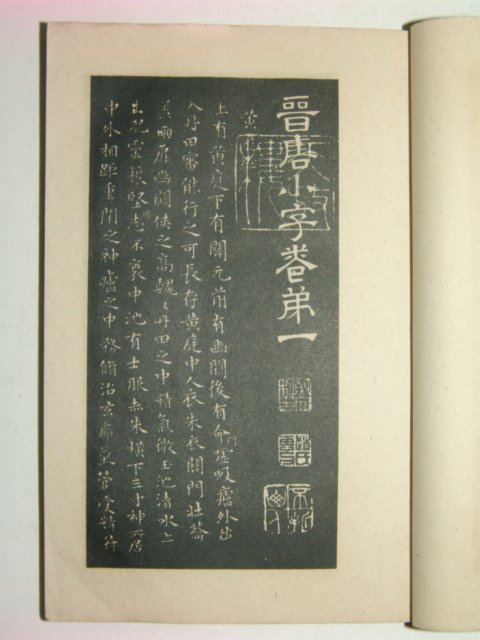 晉唐小字卷弟一
黄
上有黄庭下有關元前有幽闕後有命門噓吸廬外出
入丹田審能行之可長存黄庭中人衣朱衣關門壮蘥
兩扉幽闕俠之高巍〻丹田之中精氣微玉池清水上
生肥靈根堅志不衰中池有士服赤朱横下三寸神所居
中外相距重閇之神廬之中務脩治玄廱氣管受精符